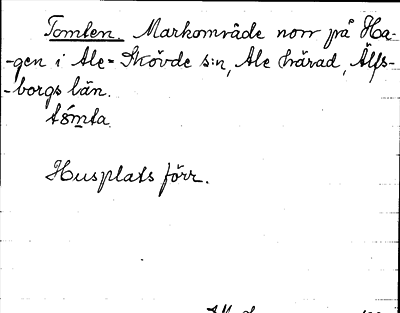 Tomten. Markområde norr på Ha-
-gen i Ale-Skövde s:n, Ale härad, Älfs-
-borgs län.
Husplats förr.